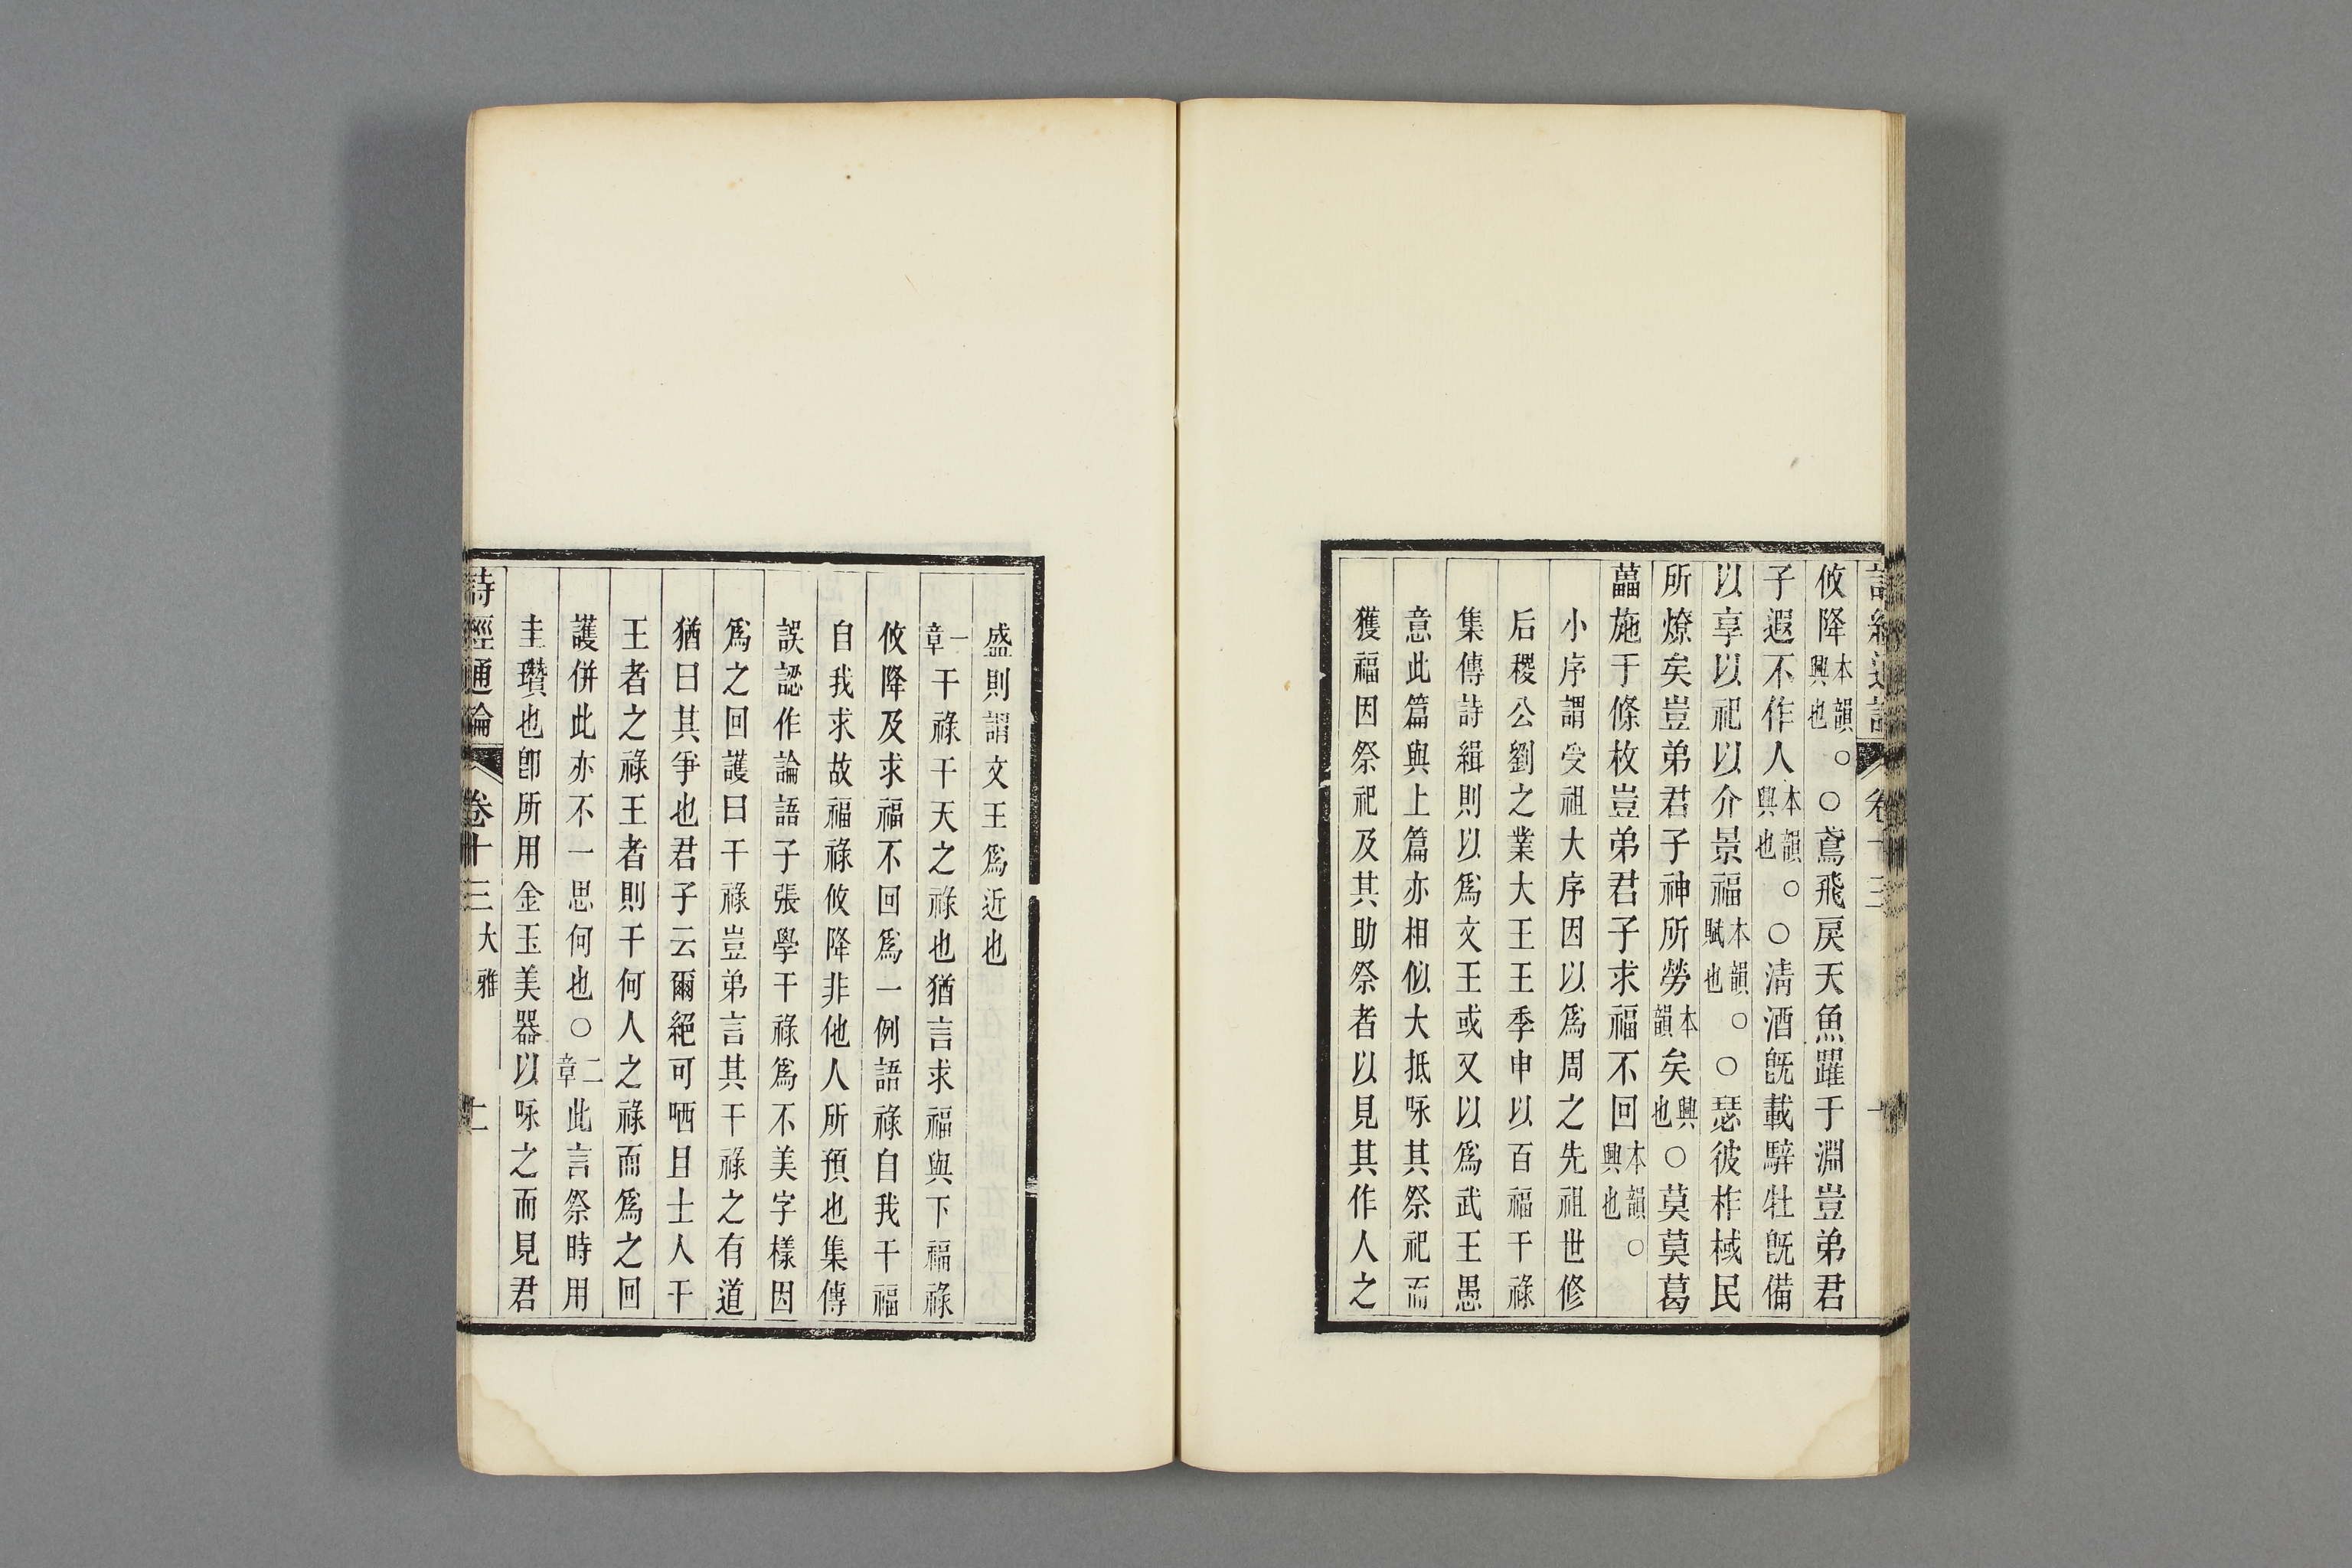 詩經通論　卷十三　十
攸降興也本韻。○鳶飛戾天魚躍于淵豈弟君
子遐不作人興也本韻。○淸酒旣載騂牡旣備
以享以祀以介景福賦也本韻。○瑟彼柞棫民
所燎矣豈弟君子神所勞本韻矣興也○莫莫葛
藟施于條枚豈弟君子求福不回興也本韻。
小序謂受祖大序因以爲周之先祖世修
后稷公劉之業大王王季申以百福干祿
集傳詩緝則以爲文王或又以爲武王愚
意此篇與上篇亦相似大抵咏其祭祀而
獲福因祭祀及其助祭者以見其作人之
盛則謂文王爲近也
一章干祿干天之祿也猶言求福與下福祿
攸降及求福不回爲一例語祿自我干福
自我求故福祿攸降非他人所預也集傳
誤認作論語子張學干祿爲不美字樣因
爲之回護曰干祿豈弟言其干祿之有道
猶曰其爭也君子云爾絕可哂且士人干
王者之祿王者則干何人之祿而爲之回
護併此亦不一思何也○二章此言祭時用
圭瓚也卽所用金玉美器以咏之而見君
詩經通論　卷十三　大雅